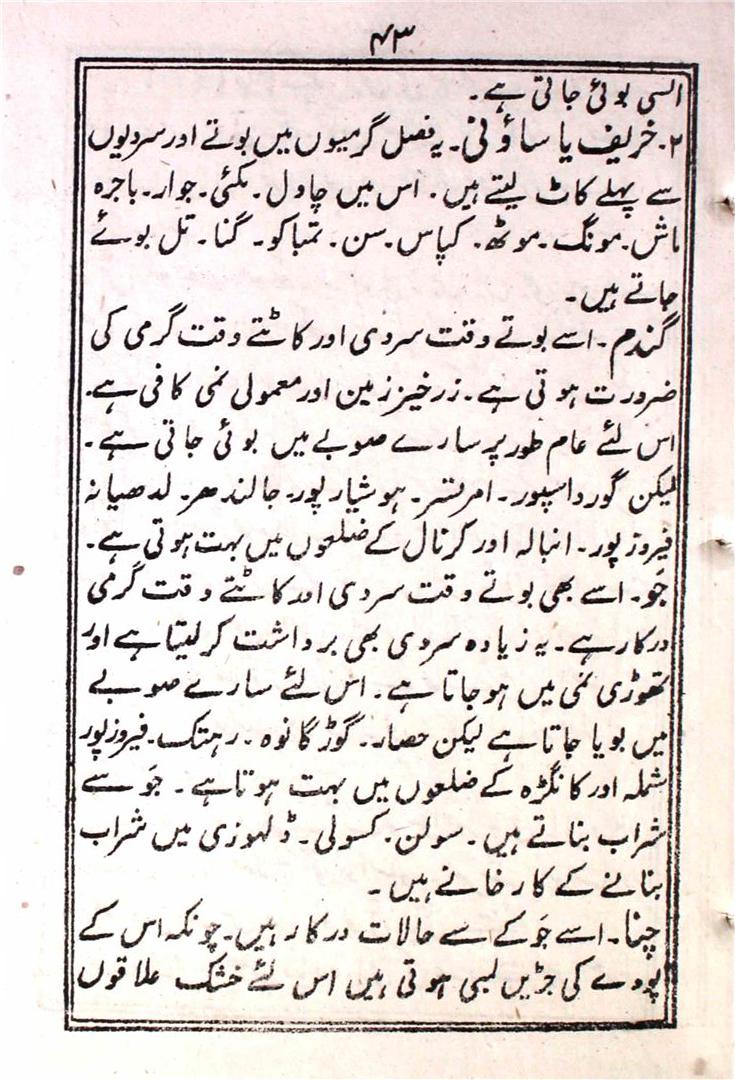 ۴۳
السی بوئی جاتی ہے۔
۲۔ خریف یا ساؤنی۔ یہ فصل گرمیوں میں بوتے اور سردیوں
سے پہلے کاٹ لیتے ہیں۔ اس میں چاول۔ مکئی۔ جوار۔ باجرہ
ماش۔ مونگ۔ موٹھ۔ کپاس۔ سن۔ تمباکو۔ گنا۔ تل بوئے
جاتے ہیں۔
گندم۔ اسے بوتے وقت سردی اور کاٹتے وقت گرمی کی
ضرورت ہوتی ہے۔ زرخیز زمین اور معمولی نمی کافی ہے۔
اس لئے عام طور پر سارے صوبے میں بوئی جاتی ہے۔
لیکن گورداسپور۔ امرتسر۔ ہوشیارپور۔ جالندھر۔ لدھیانہ
فیروزپور۔ انبالہ اور کرنال کے ضلعوں میں بہت ہوتی ہے۔
جَو۔ اسے بھی بوتے وقت سردی اور کاٹتے وقت گرمی
درکار ہے۔ یہ زیادہ سردی بھی برداشت کر لیتا ہے اور
تھوڑی نمی میں ہو جاتا ہے۔ اس لئے سارے صوبے
میں بویا جاتا ہے لیکن حصار۔ گوڑگانوہ۔ رہتک۔ فیروزپور
شملہ اور کانگڑہ کے ضلعوں میں بہت ہوتا ہے۔ جَو سے
شراب بناتے ہیں۔ سولن۔ کسولی۔ ڈلہوزی میں شراب
بنانے کے کارخانے ہیں۔
چنا۔ اسے جَو کے سے حالات درکار ہیں۔ چونکہ اس کے
پودے کی جڑیں لمبی ہوتی ہیں اس لئے خشک علاقوں